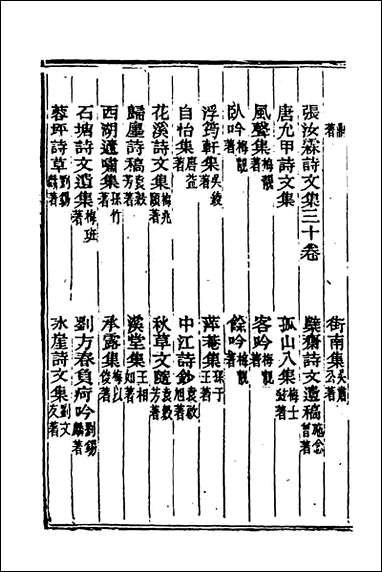 著
街南集吳肅公著
張汝霖詩文集三十卷
齋詩文遺稿施念曾著
唐允甲詩文集
孤山八集梅士著
風聲集梅靚著
客吟梅靚著
臥吟梅靚著
餘吟梅靚著
浮筠軒集吳著
萍菴集孫子王著
自怡集唐益著
中江詩鈔袁啟旭著
花溪詩文集梅兆頤著
秋草文隨袁穀芳著
歸廛詩稿袁穀芳著
漢堂集王相如著
西湖遁嘯集孫竹著
承露集梅以俊著
石塘詩文遺集梅班著
劉方春負荷吟劉錫麟著
蓉坪詩草劉錫麟著
水崖詩文集劉文友著